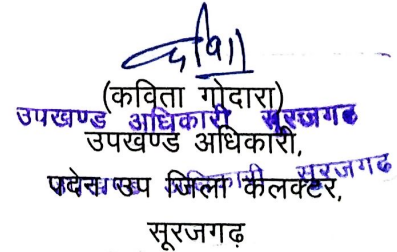 कविता
(कविता गोदारा)
उपखण्ड अधिकारी सूरजगढ
उपखण्ड अधिकारी,
उपखण्ड अधिकारी सूरजगढ
पदेन उप जिला कलक्टर,
सूरजगढ़